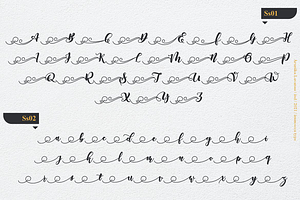 Ss01
A B C D E F G H
I J K L M N O P
Q R S T U V W
X Y Z
Ss02
a b c d e f g h i
j k l m n o p q
r s t u v w x y z